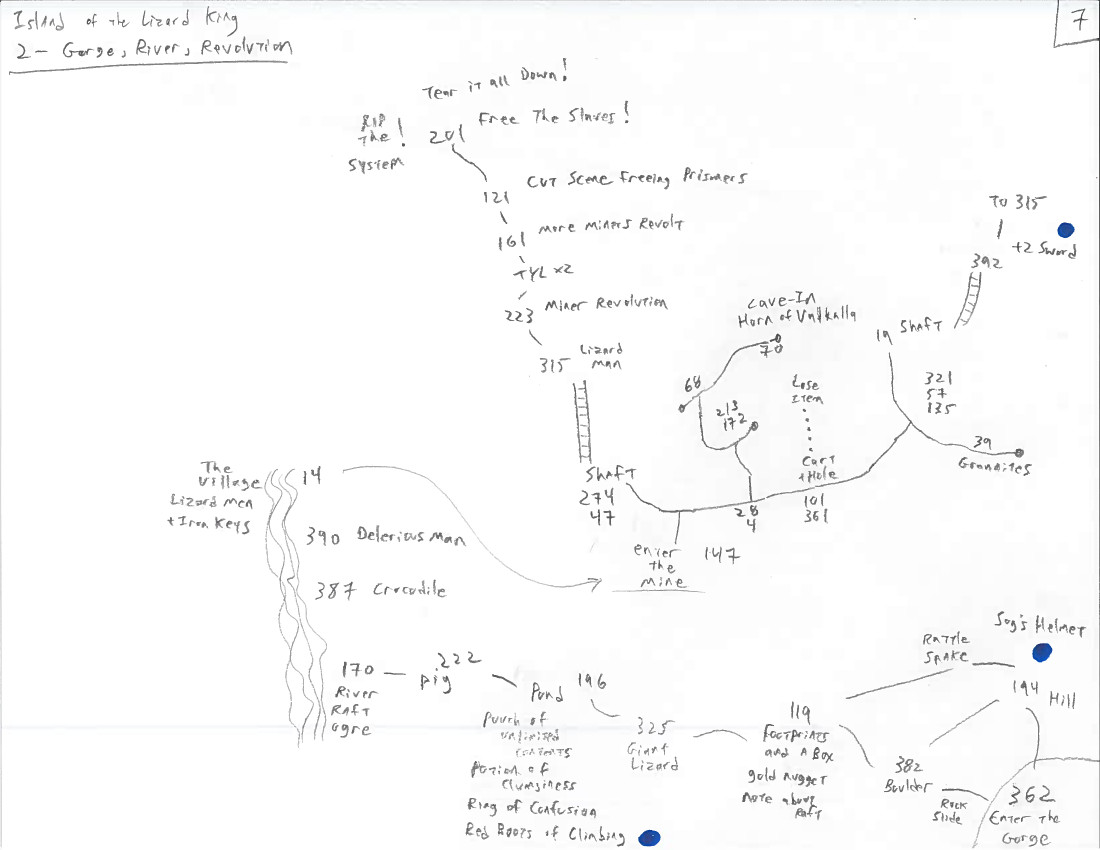 Island of the Lizard King
2 - Gorge, River, Revolution
7
Tear it all Down!
RIP
The !
System
201
Free The Slaves!
121
Cut Scene Freeing Prisoners
161
More Miners Revolt
TYL x2
223
Miner Revolution
315
Lizard
Man
Shaft
274
47
enter
the
mine
147
28
4
213
172
68
70
Cave-In
Horn of Valhalla
Lose
Item
Cart
+ Hole
101
361
19
Shaft
321
57
135
39
Grannites
392
+2 Sword
To 315
The
Village
Lizard Men
+ Iron Keys
14
390 Delerious Man
387 Crocodile
170
River
Raft
Ogre
222
pig
Pond
196
Pouch of
Unlimited
Contents
Potion of
Clumsiness
Ring of Confusion
Red Boots of Climbing
325
Giant
Lizard
119
Footprints
and A Box
gold nugget
Note about
Raft
Rattle
Snake
Sog's Helmet
194 Hill
382
Boulder
Rock
Slide
362
Enter The
Gorge